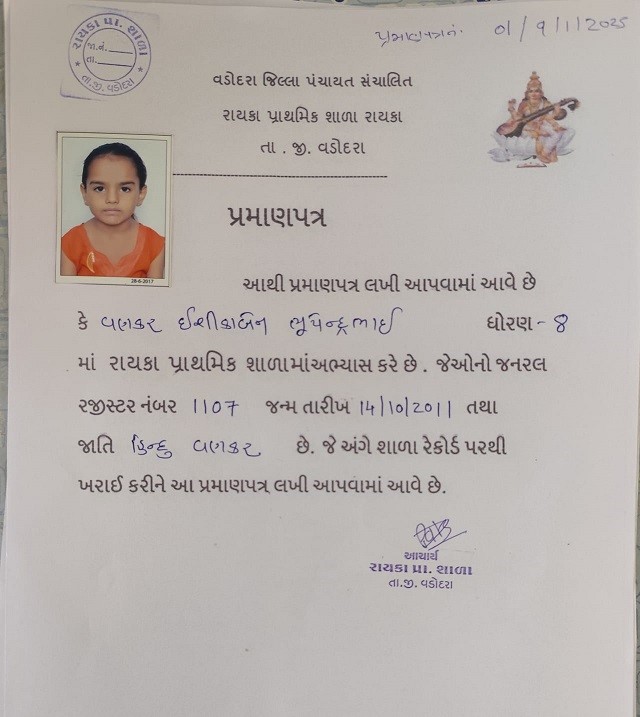 રાયકા પ્રા. શાળા
જા.નં.
તા.
તા.જી. વડોદરા
પ્રમાણપત્રનં. 01/9/1/2025
વડોદરા જિલ્લા પંચાયત સંચાલિત
રાયકા પ્રાથમિક શાળા રાયકા
તા . જી. વડોદરા
28-6-2017
પ્રમાણપત્ર
આથી પ્રમાણપત્ર લખી આપવામાં આવે છે
કે વણકર ઈશીકાબેન ભૂપેન્દ્રભાઈ ધોરણ - 8
માં રાયકા પ્રાથમિક શાળામાંઅભ્યાસ કરે છે . જેઓનો જનરલ
રજીસ્ટર નંબર 1107 જન્મ તારીખ 14/10/2011 તથા
જાતિ હિન્દુ વણકર છે. જે અંગે શાળા રેકોર્ડ પરથી
ખરાઈ કરીને આ પ્રમાણપત્ર લખી આપવામાં આવે છે.
આચાર્ય
રાયકા પ્રા. શાળા
તા.જી. વડોદરા